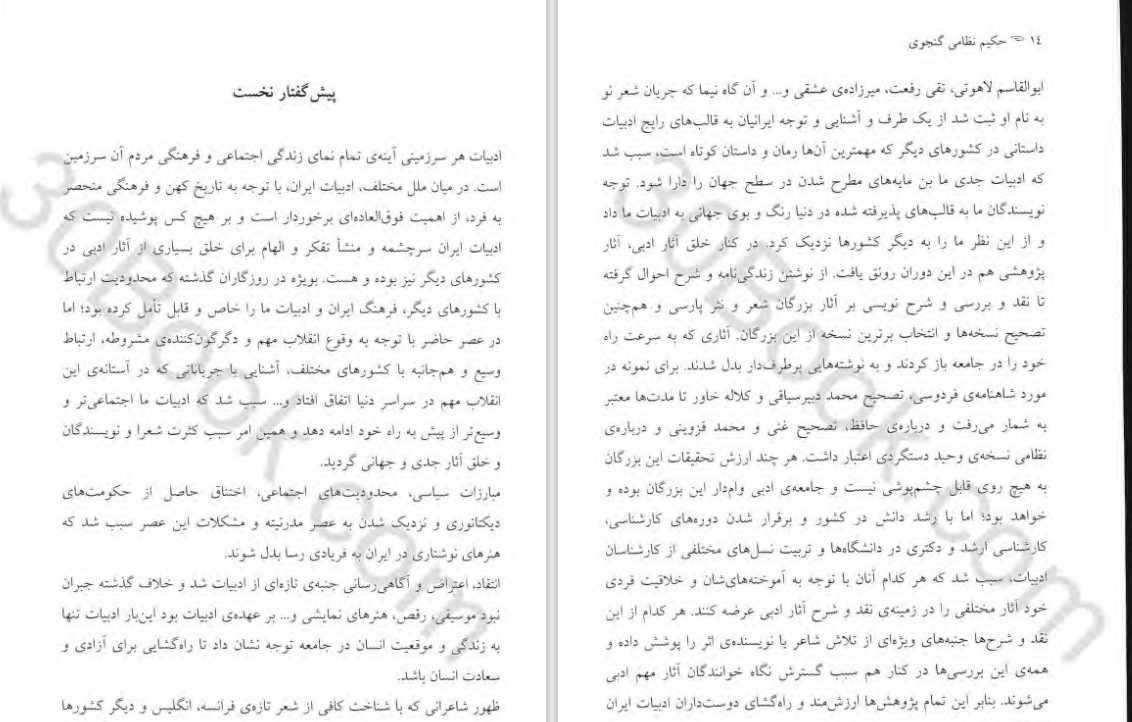 پیش‌گفتار نخست
ادبیات هر سرزمینی آینه‌ی تمام نمای زندگی اجتماعی و فرهنگی مردم آن سرزمین
است. در میان ملل مختلف، ادبیات ایران، با توجه به تاریخ کهن و فرهنگی منحصر
به فرد، از اهمیت فوق‌العاده‌ای برخوردار است و بر هیچ کس پوشیده نیست که
ادبیات ایران سرچشمه و منشأ تفکر و الهام برای خلق بسیاری از آثار ادبی در
کشورهای دیگر نیز بوده و هست. بویژه در روزگاران گذشته که محدودیت ارتباط
با کشورهای دیگر، فرهنگ ایران و ادبیات ما را خاص و قابل تأمل کرده بود؛ اما
در عصر حاضر با توجه به وقوع انقلاب مهم و دگرگون‌کننده‌ی مشروطه، ارتباط
وسیع و هم‌جانبه با کشورهای مختلف، آشنایی با جریاناتی که در آستانه‌ی این
انقلاب مهم در سراسر دنیا اتفاق افتاد و... سبب شد که ادبیات ما اجتماعی‌تر و
وسیع‌تر از پیش به راه خود ادامه دهد و همین امر سبب کثرت شعرا و نویسندگان
و خلق آثار جدی و جهانی گردید.
مبارزات سیاسی، محدودیت‌های اجتماعی، اختناق حاصل از حکومت‌های
دیکتاتوری و نزدیک شدن به عصر مدرنیته و مشکلات این عصر سبب شد که
هنرهای نوشتاری در ایران به فریادی رسا بدل شوند.
انتقاد، اعتراض و آگاهی‌رسانی جنبه‌ی تازه‌ای از ادبیات شد و خلاف گذشته جبران
نبود موسیقی، رقص، هنرهای نمایشی و... بر عهده‌ی ادبیات بود این‌بار ادبیات تنها
به زندگی و موقعیت انسان در جامعه توجه نشان داد تا راه‌گشایی برای آزادی و
سعادت انسان باشد.
ظهور شاعرانی که با شناخت کافی از شعر تازه‌ی فرانسه، انگلیس و دیگر کشورها
۱۴ حکیم نظامی گنجوی
ابوالقاسم لاهوتی، تقی رفعت، میرزاده‌ی عشقی و... و آن گاه نیما که جریان شعر نو
به نام او ثبت شد از یک طرف و آشنایی و توجه ایرانیان به قالب‌های رایج ادبیات
داستانی در کشورهای دیگر که مهمترین آن‌ها رمان و داستان کوتاه است، سبب شد
که ادبیات جدی ما بن مایه‌های مطرح شدن در سطح جهان را دارا شود. توجه
نویسندگان ما به قالب‌های پذیرفته شده در دنیا رنگ و بوی جهانی به ادبیات ما داد
و از این نظر ما را به دیگر کشورها نزدیک کرد. در کنار خلق آثار ادبی، آثار
پژوهشی هم در این دوران رونق یافت. از نوشتن زندگی‌نامه و شرح احوال گرفته
تا نقد و بررسی و شرح نویسی بر آثار بزرگان شعر و نثر پارسی و هم‌چنین
تصحیح نسخه‌ها و انتخاب برترین نسخه از این بزرگان. آثاری که به سرعت راه
خود را در جامعه باز کردند و به نوشته‌هایی پرطرف‌دار بدل شدند. برای نمونه در
مورد شاهنامه‌ی فردوسی، تصحیح محمد دبیرسیاقی و کلاله خاور تا مدت‌ها معتبر
به شمار می‌رفت و درباره‌ی حافظ، تصحیح غنی و محمد قزوینی و درباره‌ی
نظامی نسخه‌ی وحید دستگردی اعتبار داشت. هر چند ارزش تحقیقات این بزرگان
به هیچ روی قابل چشم‌پوشی نیست و جامعه‌ی ادبی وام‌دار این بزرگان بوده و
خواهد بود؛ اما با رشد دانش در کشور و برقرار شدن دوره‌های کارشناسی،
کارشناسی ارشد و دکتری در دانشگاه‌ها و تربیت نسل‌های مختلفی از کارشناسان
ادبیات، سبب شد که هر کدام آنان با توجه به آموخته‌های‌شان و خلاقیت فردی
خود آثار مختلفی را در زمینه‌ی نقد و شرح آثار ادبی عرضه کنند. هر کدام از این
نقد و شرح‌ها جنبه‌های ویژه‌ای از تلاش شاعر یا نویسنده‌ی اثر را پوشش داده و
همه‌ی این بررسی‌ها در کنار هم سبب گسترش نگاه خوانندگان آثار مهم ادبی
می‌شوند. بنابر این تمام پژوهش‌ها ارزش‌مند و راه‌گشای دوست‌داران ادبیات ایران
30Book.com
30Book.com